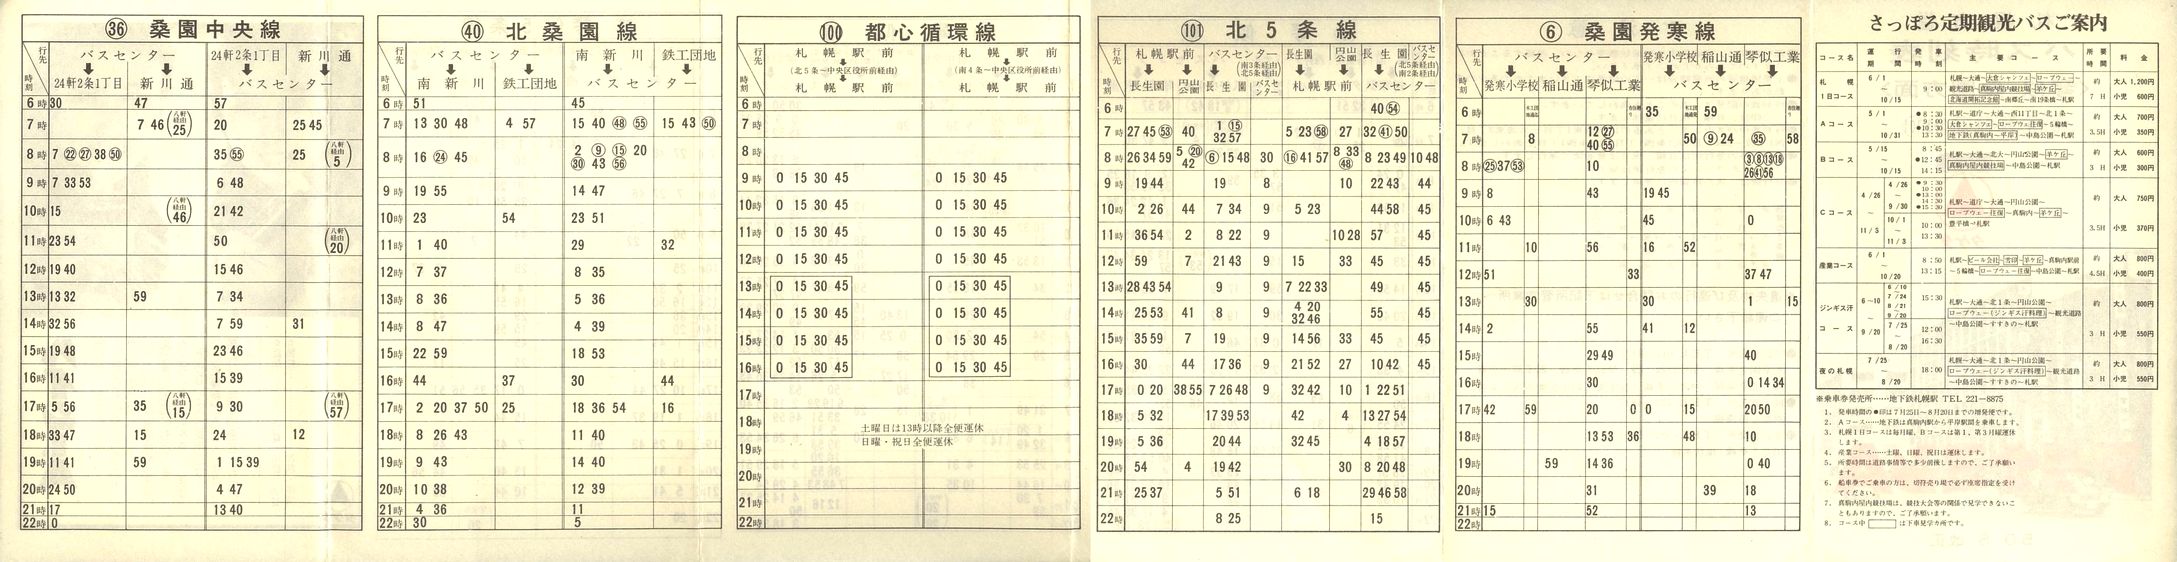 ㊱ 桑園中央線
行先 時刻
バスセンター 24軒2条1丁目 新川通
24軒2条1丁目 新川通 バスセンター
6時 30 47 57
7時 7 46 (八軒経由 25) 20 25 45
8時 7 ㉒ ㉗ 38 ㊿ 35 55 25 (八軒経由 5)
9時 7 33 53 6 48
10時 15 (八軒経由 46) 21 42
11時 23 54 50 (八軒経由 20)
12時 19 40 15 46
13時 13 32 59 7 34
14時 32 56 7 59 31
15時 19 48 23 46
16時 11 41 15 39
17時 5 56 35 (八軒経由 15) 9 30 (八軒経由 57)
18時 33 47 15 24 12
19時 11 41 59 1 15 39
20時 24 50 4 47
21時 17 13 40
22時 0
㊵ 北桑園線
行先 時刻
バスセンター 南新川 鉄工団地
南新川 鉄工団地 バスセンター
6時 51 45
7時 13 30 48 4 57 15 40 ㊽ 55 15 43 ㊿
8時 16 ㉔ 45 2 ⑨ ⑮ 20 ㉚ 43 56
9時 19 55 14 47
10時 23 54 23 51
11時 1 40 29 32
12時 7 37 8 35
13時 8 36 5 36
14時 8 47 4 39
15時 22 59 18 53
16時 44 37 30 44
17時 2 20 37 50 25 18 36 54 16
18時 8 26 43 11 40
19時 9 43 14 40
20時 10 38 12 39
21時 4 36 11
22時 30 5
100 都心循環線
行先 時刻
札幌駅前 札幌駅前
(北5条~中央区役所前経由) (南4条~中央区役所前経由)
札幌駅前 札幌駅前
6時
7時
8時
9時 0 15 30 45 0 15 30 45
10時 0 15 30 45 0 15 30 45
11時 0 15 30 45 0 15 30 45
12時 0 15 30 45 0 15 30 45
13時 0 15 30 45 0 15 30 45
14時 0 15 30 45 0 15 30 45
15時 0 15 30 45 0 15 30 45
16時 0 15 30 45 0 15 30 45
17時
18時
土曜日は13時以降全便運休
日曜・祝日全便運休
19時
20時
21時
22時
101 北5条線
行先 時刻
札幌駅前 バスセンター (南3条経由) (北5条経由) 長生園 円山公園 長生園 バスセンター (北5条経由) (南2条経由)
長生園 円山公園 長生園 バスセンター 札幌駅前 バスセンター
6時 40 54
7時 27 45 53 40 1 ⑮ 32 57 5 23 58 27 32 ㊶ 50
8時 26 34 59 5 ⑳ 42 ⑥ 15 48 30 ⑯ 41 57 8 33 ㊽ 8 23 49 10 48
9時 19 44 19 8 10 22 43 44
10時 2 26 44 7 34 9 5 23 44 58 45
11時 36 54 2 8 22 9 10 28 57 45
12時 59 7 21 43 9 15 33 45 45
13時 28 43 54 9 9 7 22 33 49 45
14時 25 53 41 8 9 4 20 32 46 55 45
15時 35 59 7 19 9 14 56 33 45 45
16時 30 44 17 36 9 21 52 27 10 42 45
17時 0 20 38 55 7 26 48 9 32 42 10 1 22 51
18時 5 32 17 39 53 42 4 13 27 54
19時 5 36 20 44 32 45 4 18 57
20時 54 4 19 42 30 8 20 48
21時 25 37 5 51 6 18 29 46 58
22時 8 25 15
⑥ 桑園発寒線
行先 時刻
バスセンター 発寒小学校 稲山通 琴似工業
発寒小学校 稲山通 琴似工業 バスセンター
6時 35 59
7時 8 12 ㉗ 40 55 50 ⑨ 24 ㉟ 58
8時 ㉕ 37 53 10 ③ ⑧ ⑬ ⑱ 26 ㊶ 56
9時 8 43 19 45
10時 6 43 45 0
11時 10 56 16 52
12時 51 33 37 47
13時 30 30 1 15
14時 2 55 41 12
15時 29 49 40
16時 30 0 14 34
17時 42 59 20 0 0 15 20 50
18時 13 53 36 48 10
19時 59 14 36 0 40
20時 31 39 18
21時 15 52 13
22時
さっぽろ定期観光バスご案内
コース名 運行期間 発車時刻 主要コース 所要時間 料金
札幌1日コース 6/1~10/15 9:00 札幌~大通~大倉シャンツェ~ロープウェー~観光道路~真駒内屋内競技場~羊ケ丘~北海道開拓記念館~南郷丘~南19条橋~札駅 約7H 大人1,200円 小児600円
Aコース 5/1~10/31 ●8:30 9:00 ●10:30 13:30 札駅~道庁~大通~西11丁目~北1条~大倉シャンツェ~ロープウェー往復~5輪橋~地下鉄(真駒内~平岸)~中島公園~札駅 約3.5H 大人700円 小児350円
Bコース 5/15~10/15 8:45 ●12:45 14:15 札駅~大通~北大~円山公園~羊ケ丘~真駒内屋内競技場~中島公園~札駅 約3H 大人600円 小児300円
Cコース 4/26~11/3 4/26~9/30 ●9:30 10:00 ●13:00 14:30 ●15:30 10/1~11/3 10:00 13:30 札駅~道庁~大通~円山公園~ロープウェー往復~真駒内~羊ケ丘~豊平橋~札駅 約3.5H 大人750円 小児370円
産業コース 6/1~10/20 8:50 13:15 札駅~ビール会社~雪印~羊ケ丘~真駒内駅前~5輪橋~ロープウェー往復~中島公園~札駅 約4.5H 大人800円 小児400円
ジンギス汗コース 6~10~9/20 6/10~7/24 8/21~9/20 15:30 7/25~8/20 12:00 16:30 札駅~大通~北1条~円山公園~ロープウェー(ジンギス汗料理)~観光道路~中島公園~すすきの~札駅 約3H 大人800円 小児550円
夜の札幌 7/25~8/20 18:00 札幌~大通~北1条~円山公園~ロープウェー(ジンギス汗料理)~観光道路~中島公園~すすきの~札駅 約3H 大人800円 小児550円
※乗車券発売所……地下鉄札幌駅 TEL 221-8875
1. 発車時間の●印は7月25日~8月20日までの増発便です。
2. Aコース……地下鉄は真駒内駅から平岸駅間を乗車します。
3. 札幌1日コースは毎月曜、Bコースは第1、第3月曜運休
します。
4. 産業コース……土曜、日曜、祝日は運休します。
5. 所要時間は道路事情等で多少前後しますので、ご了承願い
ます。
6. 船車券でご乗車の方は、切符売り場で必ず座席指定を受け
てください。
7. 真駒内屋内競技場は、競技大会等の関係で見学できないこ
ともありますので、ご了承願います。
8. コース中 は下車見学カ所です。